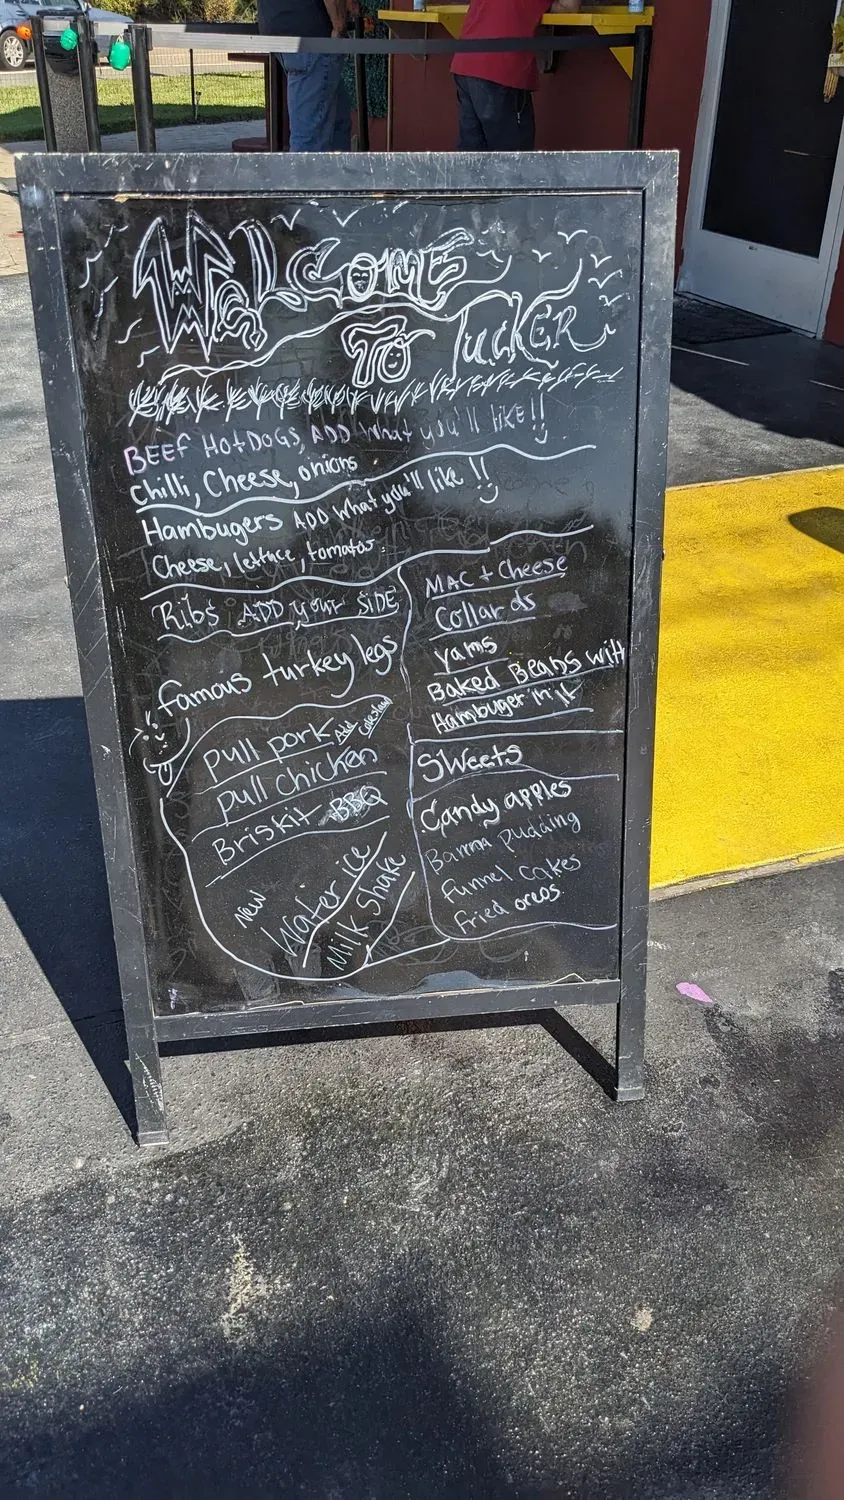 WELCOME
TO TUCKER
BEEF HOTDOGS, ADD what you'll like!!
Chilli, Cheese, onions
Hambugers ADD what you'll like!!
Cheese, lettuce, tomatos
Ribs ADD your SIDE
famous turkey legs
pull pork Add coleslaw
pull chicken
Briskit BBQ
New
Water ice
Milk Shake
MAC + Cheese
Collards
yams
Baked Beans with
Hambuger in it
Sweets
Candy apples
Banna pudding
Funnel cakes
Fried oreos